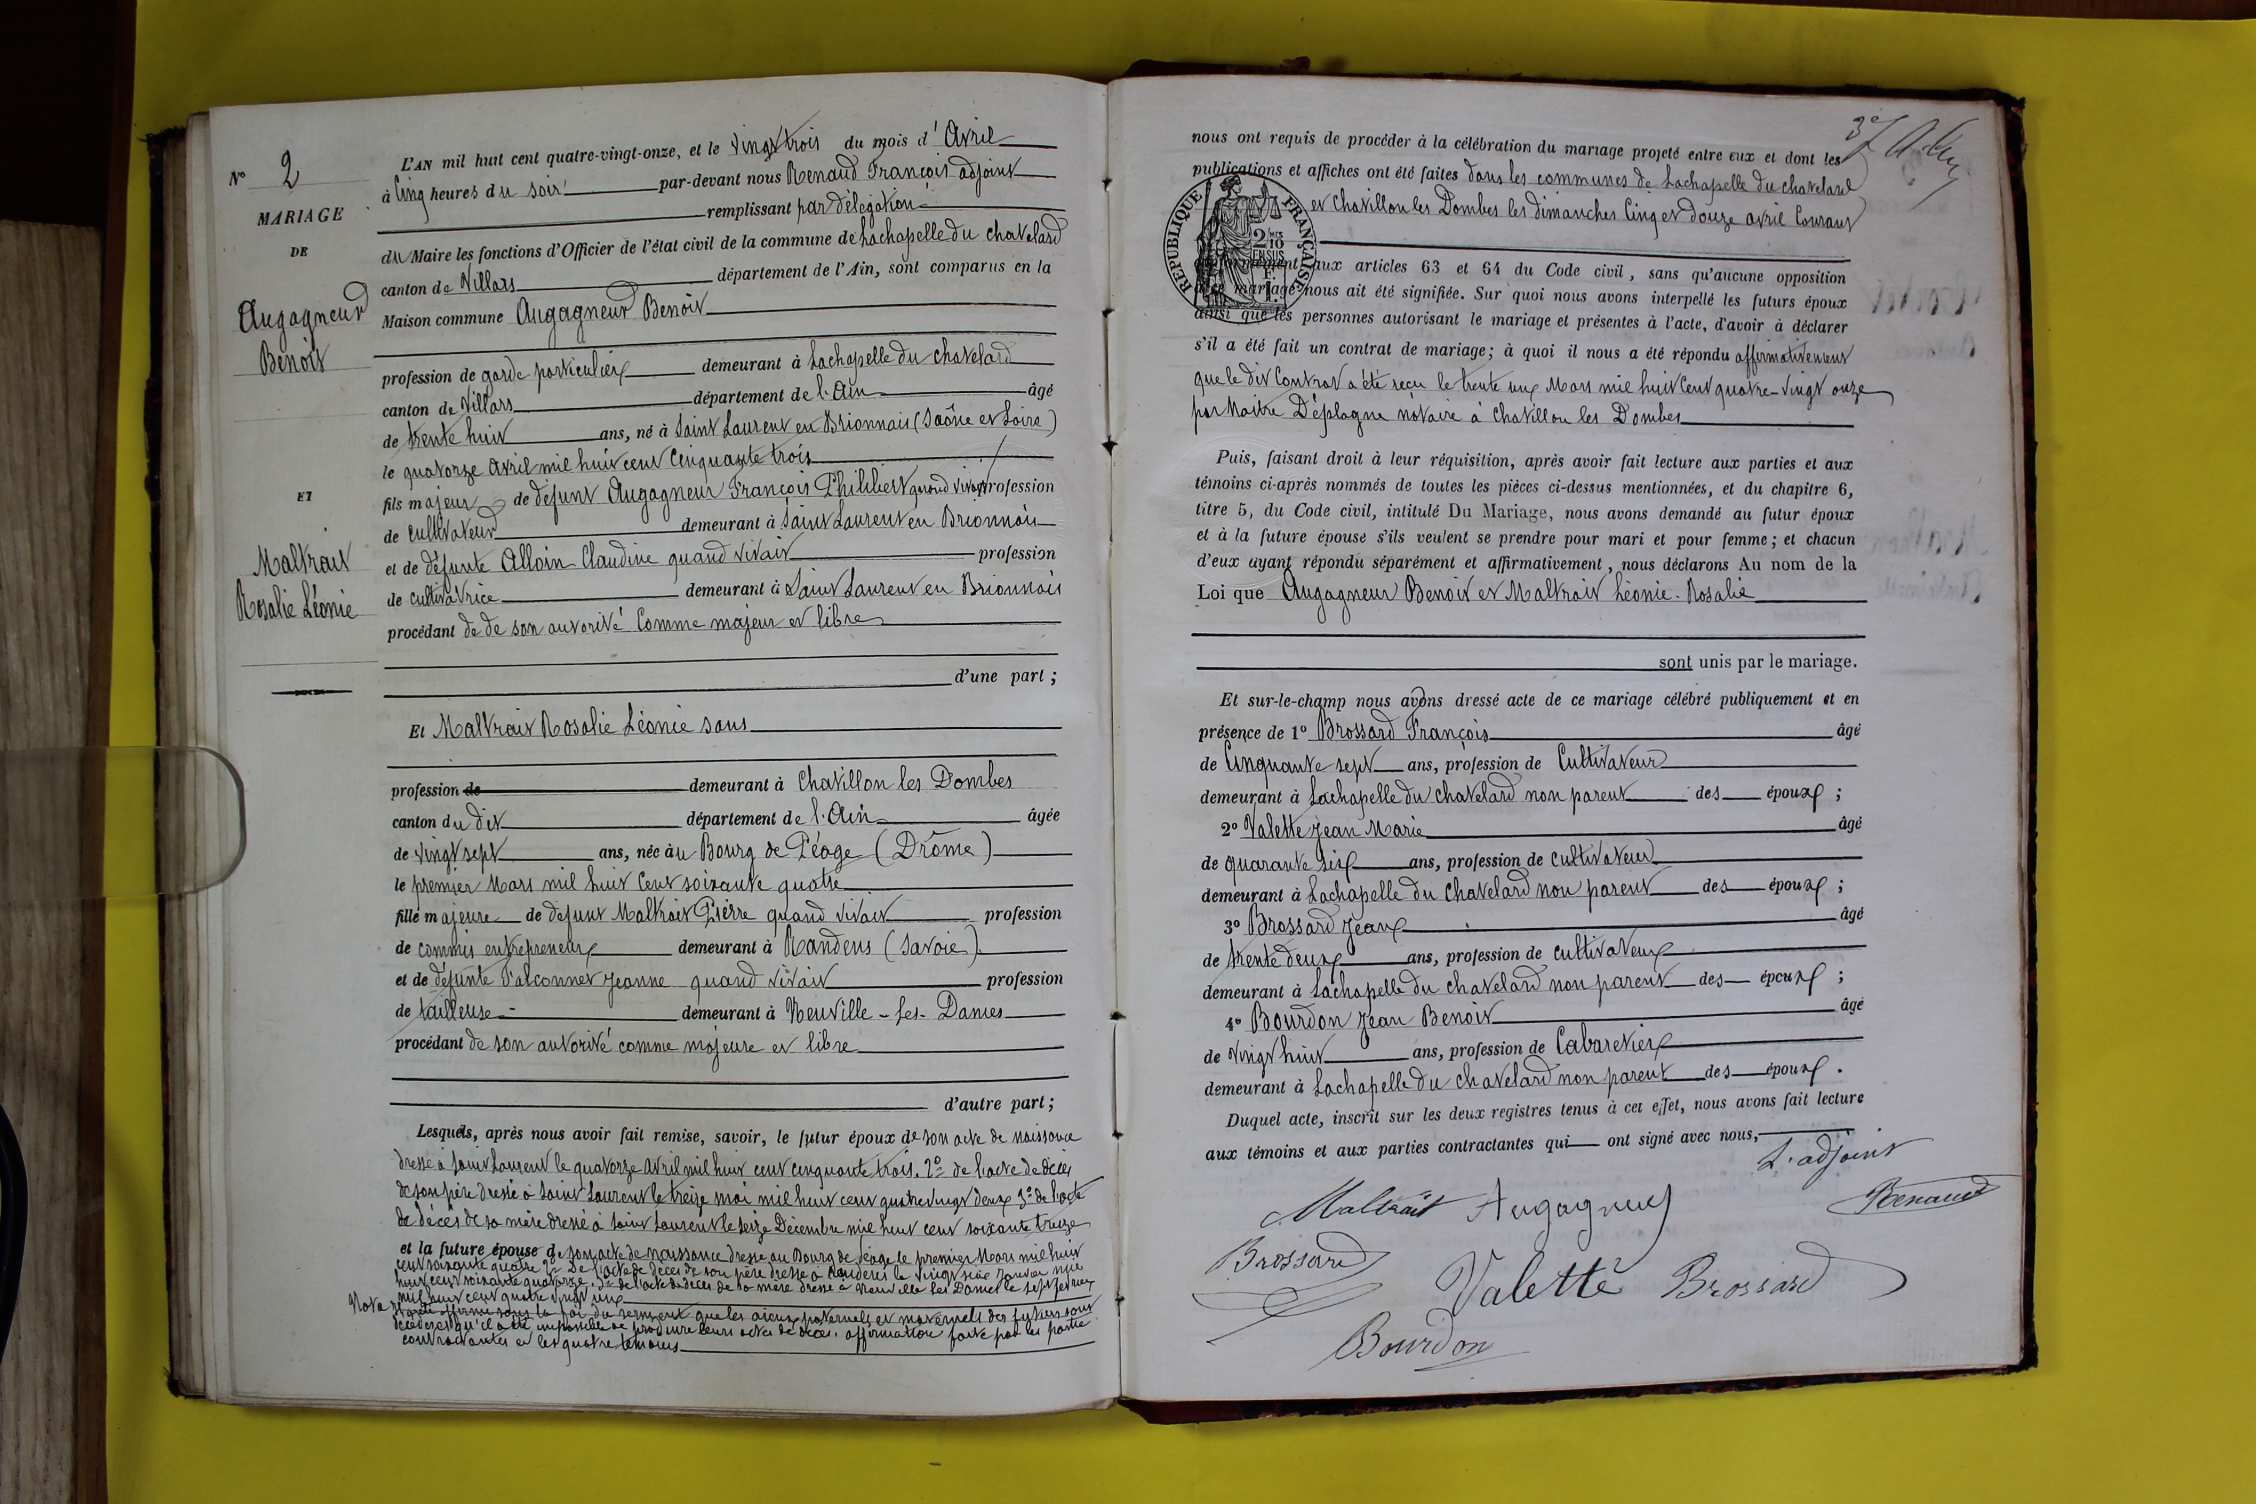 N° 2
MARIAGE
DE
Augagneur
Benoit
ET
Maltrait
Rosalie Léonie
L'AN mil huit cent quatre-vingt-onze, et le vingt trois du mois d'Avril
à Cinq heures du soir par-devant nous Renaud François adjoint
remplissant par délégation
du Maire les fonctions d'Officier de l'état civil de la commune de Lachapelle du chatelard
canton de Villars département de l'Ain, sont comparus en la
Maison commune Augagneur Benoit
profession de garde particulier demeurant à Lachapelle du chatelard
canton de Villars département de l'Ain âgé
de trente huit ans, né à Saint Laurent en Brionnais (Saône et Loire)
le quatorze Avril mil huit cent Cinquante trois
fils majeur de défunt Augagneur François Philibert quand vivait profession
de cultivateur demeurant à Saint Laurent en Brionnais
et de défunte Alloin Claudine quand vivait profession
de cultivatrice demeurant à Saint Laurent en Brionnais
procédant de de son autorité Comme majeur et libre
d'une part ;
Et Maltrait Rosalie Léonie sans
profession de demeurant à Chatillon les Dombes
canton du dit département de l'Ain âgée
de vingt sept ans, née à u Bourg de Péage (Drôme)
le premier Mars mil huit Cent soixante quatre
fille majeure de defunt Maltrait Pierre quand vivait profession
de commis entrepreneur demeurant à Randens (Savoie)
et de défunte Falconnet Jeanne quand vivait profession
de tailleuse demeurant à Neuville-les-Dames
procédant de son autorité comme majeure et libre
d'autre part ;
Lesquels, après nous avoir fait remise, savoir, le futur époux de son acte de naissance
dressé à Saint Laurent le quatorze Avril mil huit cent cinquante trois. 2° de l'acte de décès
de son père dressé à Saint Laurent le treize mai mil huit cent quatre vingt deux 3° de l'acte
de décès de sa mère dressé à Saint Laurent le seize Décembre mil huit cent soixante treize
et la future épouse de son acte de naissance dressé au Bourg de Péage le premier Mars mil huit
cent soixante quatre 2° De l'acte de décès de son père dressé à Randens le vingt six Janvier mil
huit cent soixante quatorze. 3° de l'acte de décès de sa mère dressé à Neuville les Dames le sept février
mil huit cent quatre vingt un
Nota affirmé sous la foi du serment que les aieux paternels et maternels des futurs sont
décédés qu'il a été impossible de produire leurs actes de décès. affirmation faite par les partie
contractantes et les quatre témoins
nous ont requis de procéder à la célébration du mariage projeté entre eux et dont les
publications et affiches ont été faites dans les communes de Lachapelle du chatelard
et Chatillon les Dombes les dimanches Cinq et douze avril Courant
RÉPUBLIQUE FRANÇAISE
conformément aux articles 63 et 64 du Code civil, sans qu'aucune opposition
à ce mariage nous ait été signifiée. Sur quoi nous avons interpellé les futurs époux
ainsi que les personnes autorisant le mariage et présentes à l'acte, d'avoir à déclarer
s'il a été fait un contrat de mariage; à quoi il nous a été répondu affirmativement
que le dit Contrat a été reçu le trente un Mars mil huit Cent quatre-vingt onze
par Maitre Déplagne nòtaire à Chatillon les Dombes
Puis, faisant droit à leur réquisition, après avoir fait lecture aux parties et aux
témoins ci-après nommés de toutes les pièces ci-dessus mentionnées, et du chapitre 6,
titre 5, du Code civil, intitulé Du Mariage, nous avons demandé au futur époux
et à la future épouse s'ils veulent se prendre pour mari et pour femme; et chacun
d'eux ayant répondu séparément et affirmativement, nous déclarons Au nom de la
Loi que Augagneur Benoit et Maltrait Léonie-Rosalie
sont unis par le mariage.
Et sur-le-champ nous avons dressé acte de ce mariage célébré publiquement et en
présence de 1° Brossard François âgé
de Cinquante sept ans, profession de Cultivateur
demeurant à Lachapelle du Chatelard non parent des époux ;
2° Valette Jean Marie âgé
de quarante six ans, profession de cultivateur
demeurant à Lachapelle du Chatelard non parent des époux ;
3° Brossard Jean âgé
de trente deux ans, profession de cultivateur
demeurant à Lachapelle du Chatelard non parent des époux ;
4° Bourdon Jean Benoit âgé
de vingt huit ans, profession de Cabaretier
demeurant à Lachapelle du Chatelard non parent des époux .
Duquel acte, inscrit sur les deux registres tenus à cet effet, nous avons fait lecture
aux témoins et aux parties contractantes qui ont signé avec nous,
L'adjoint
Maltrait Augagneur Renaud
Brossard Valette Brossard
Bourdon